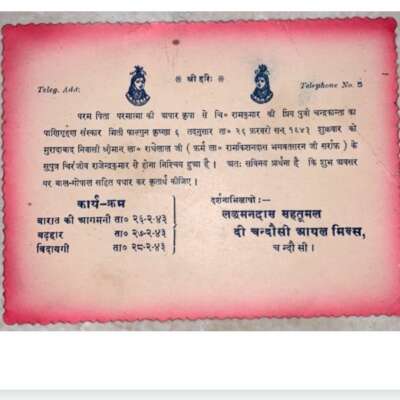 ॥ श्री हरिः ॥
Teleg. Add: Telephone No. 5
परम पिता परमात्मा की अपार कृपा से चि० रामकुमार की प्रिय पुत्री चन्द्रकान्ता का
पाणिग्रहण संस्कार मिती फाल्गुन कृष्णा ६ तदनुसार ता० २६ फ़रवरी सन् १९४३ शुक्रवार को
मुरादाबाद निवासी श्रीमान् ला० राधेलाल जी ( फ़र्म ला० रामकिशनदास भगवतसरन जी सर्राफ़ ) के
सुपुत्र चिरंजीव राजेन्द्रकुमार से होना निश्चिय हुआ है । अतः सविनय प्रार्थना है कि शुभ अवसर
पर बाल-गोपाल सहित पधार कर कृतार्थ कीजिए ।
कार्य-क्रम
बारात की आगमनी ता० २६-२-४३
बढ़हार ता० २७-२-४३
बिदायगी ता० २८-२-४३
दर्शनाभिलाषी :-
लछमनदास सहतूमल
दी चन्दौसी आयल मिल्स,
चन्दौसी ।